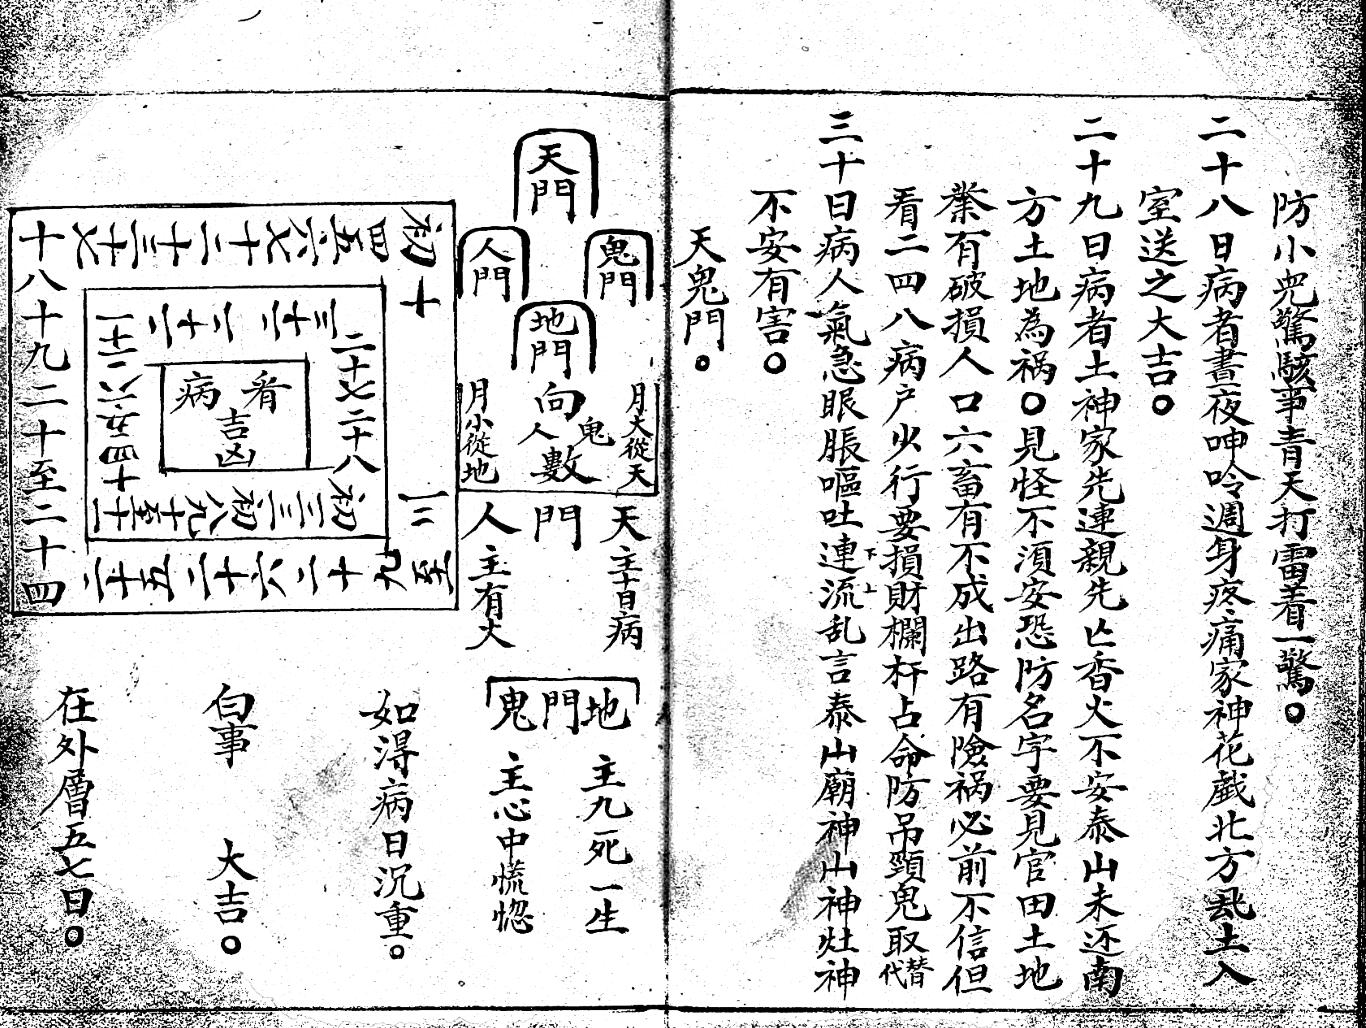 防小兒驚駭事青天打雷着一驚。
二十八日病者晝夜呻吟週身疼痛家神花戲北方乱土入
室送之大吉。
二十九日病者土神家先連親先亡香火不安泰山未还南
方土地為祸。見怪不須安恐防名字要見官田土地
業有破損人口六畜有不成出路有險祸必前不信但
看二四八病户火行要損財欄杆占命防吊頸鬼取替代
下上
三十日病人氣急眼脹嘔吐連流乱言泰山廟神山神灶神
不安有害。
天鬼門。
天門
鬼門
人門
地門
月大從天
向鬼人數
月小從地
天主十日病
門
人主有大
地門鬼
主九死一生
主心中慌惚
如得病日沉重。
白事 大吉。
在外層五七日。
看病吉凶
二十七二十八
初二三初八九十至十一
初十
一二
至九
十八十九二十至二十四